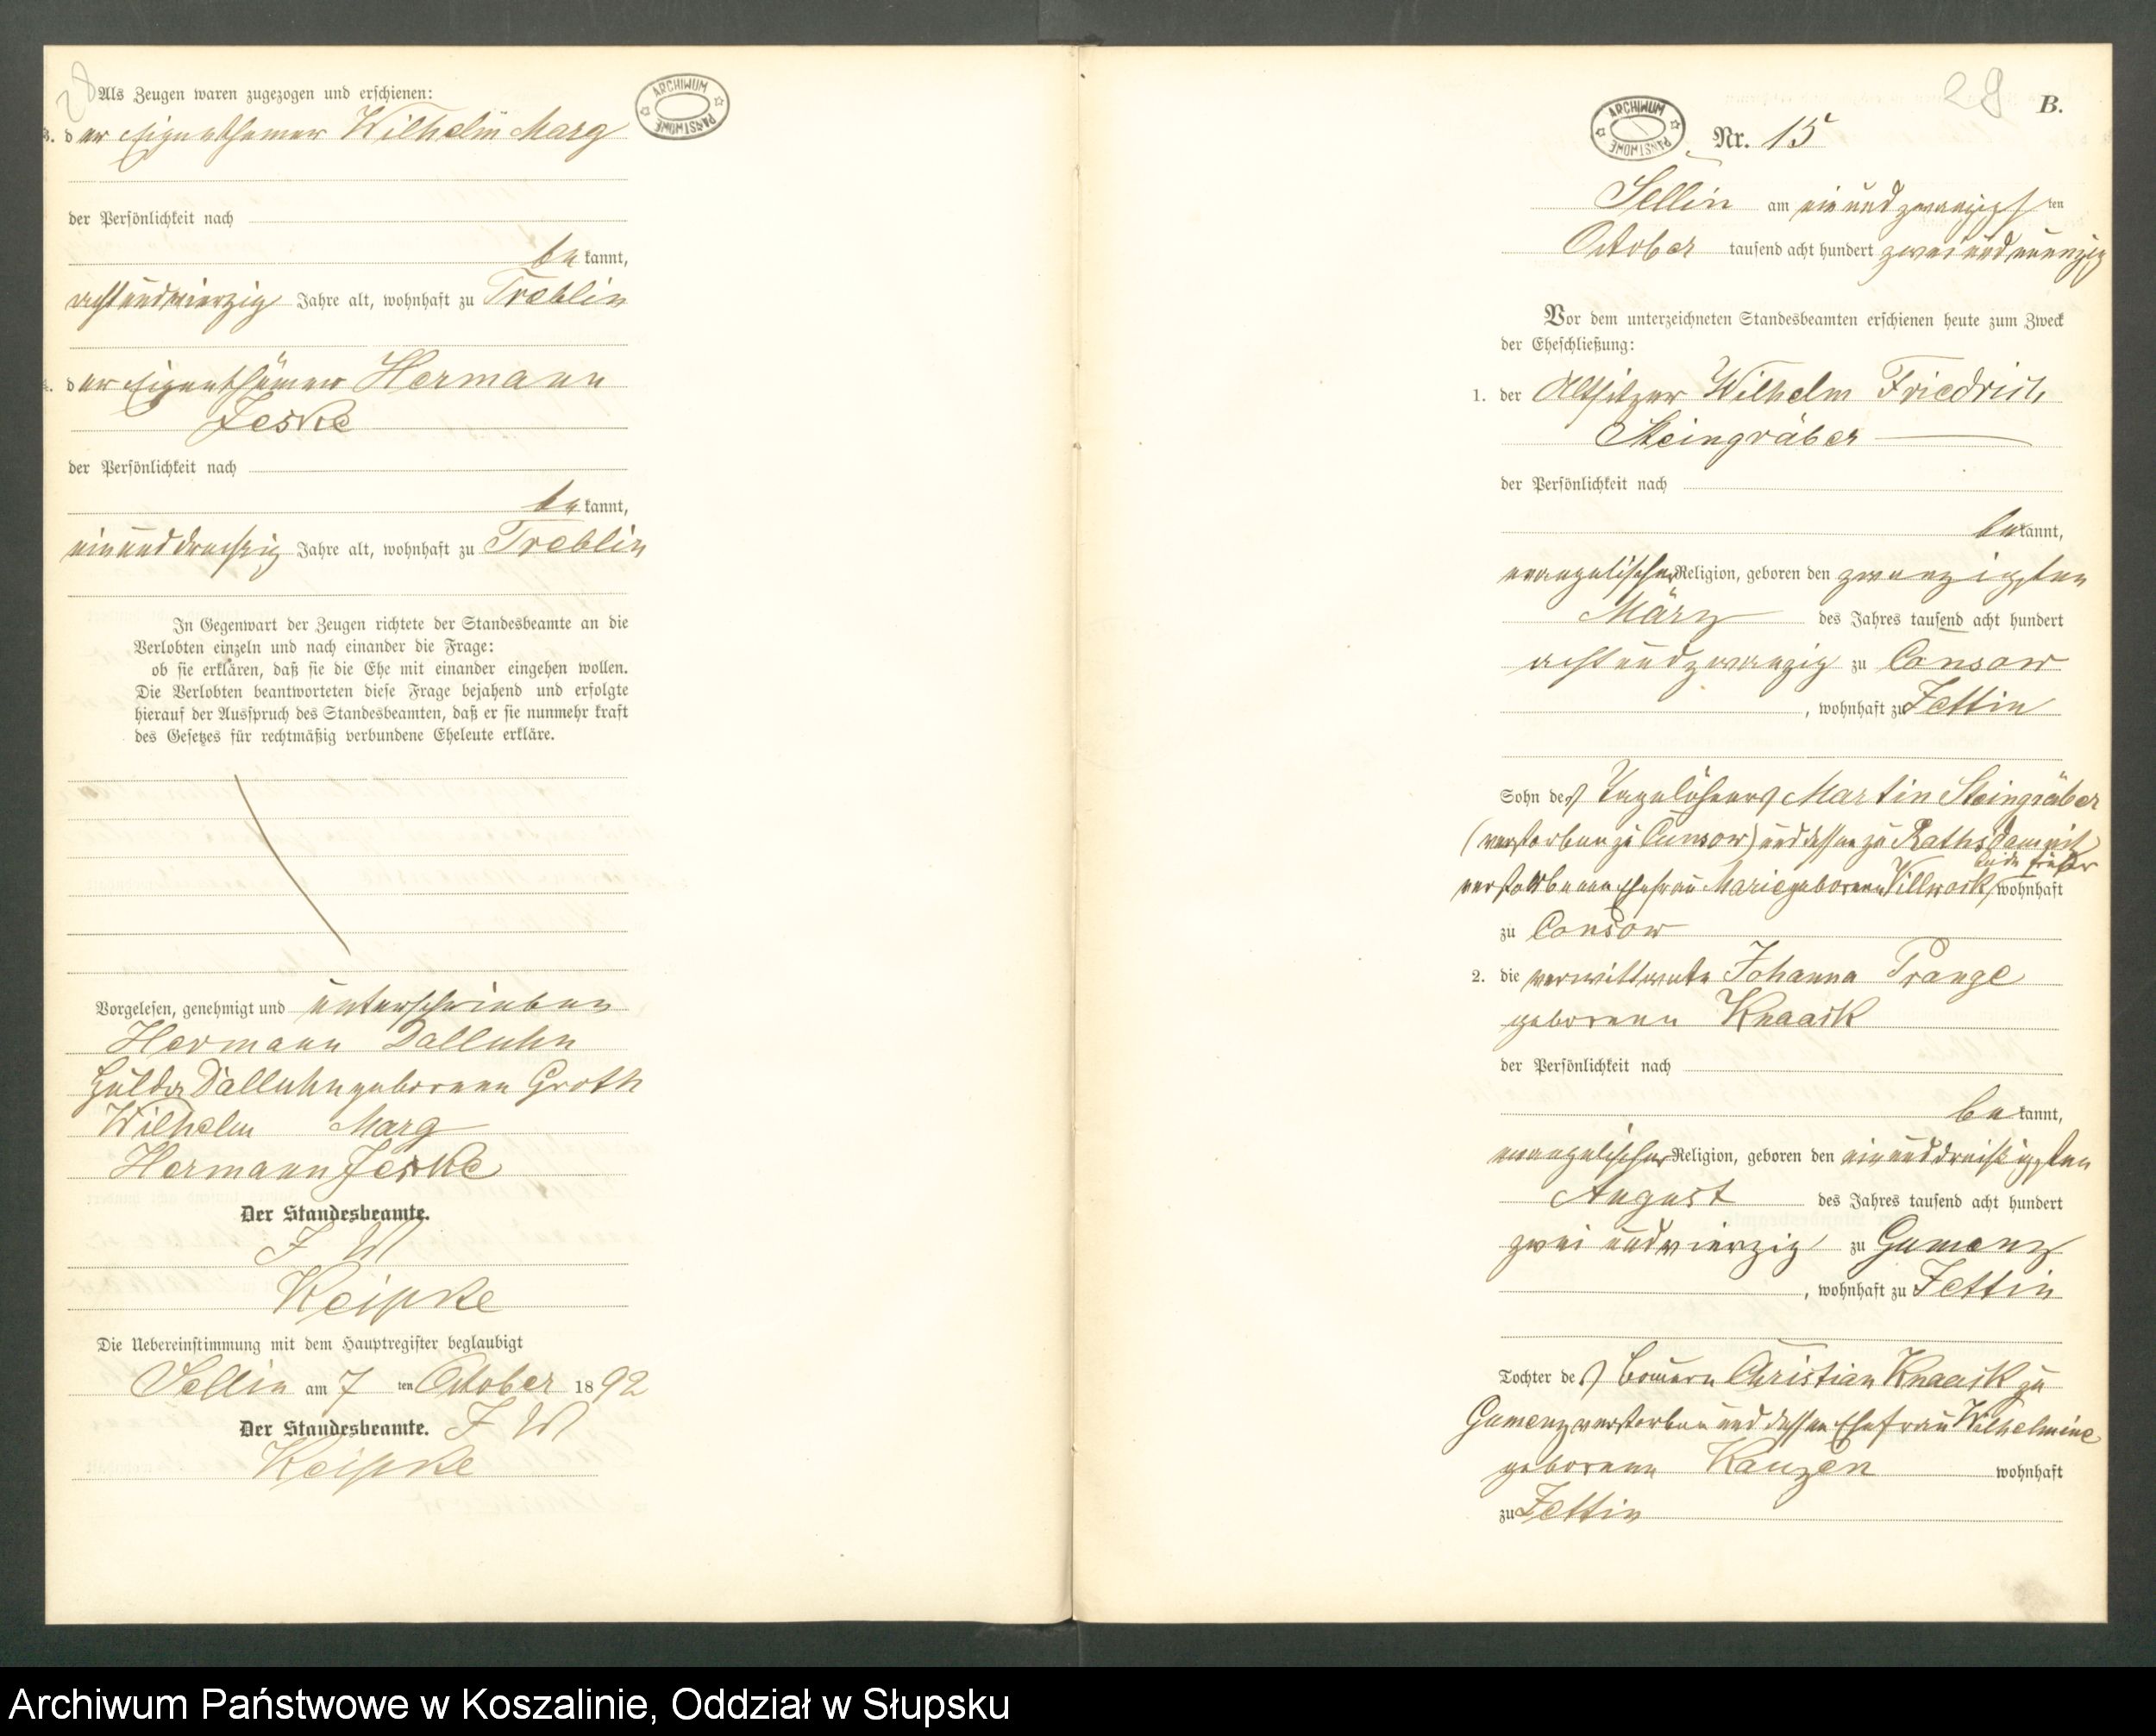 28
Als Zeugen waren zugezogen und erschienen:
3. der Eigenthümer Wilhelm Marg
der Persönlichkeit nach
bekannt,
achtundvierzig Jahre alt, wohnhaft zu Treblin
4. der Eigenthümer Hermann
Jeske
der Persönlichkeit nach
bekannt,
einunddreißig Jahre alt, wohnhaft zu Treblin
In Gegenwart der Zeugen richtete der Standesbeamte an die
Verlobten einzeln und nach einander die Frage:
ob sie erklären, daß sie die Ehe mit einander eingehen wollen.
Die Verlobten beantworteten diese Frage bejahend und erfolgte
hierauf der Ausspruch des Standesbeamten, daß er sie nunmehr kraft
des Gesetzes für rechtmäßig verbundene Eheleute erkläre.
Vorgelesen, genehmigt und unterschrieben
Hermann Dalluhn
Hulda Dalluhn geborene Groth
Wilhelm Marg
Hermann Jeske
Der Standesbeamte.
J W
Keipke
Die Uebereinstimmung mit dem Hauptregister beglaubigt
Sellin am 7 ten October 1892
Der Standesbeamte. J W
Keipke
ARCHIWUM PAŃSTWOWE
29
B.
ARCHIWUM PAŃSTWOWE
Nr. 15
Sellin am einundzwanzigsten
October tausend acht hundert zweiundneunzig
Vor dem unterzeichneten Standesbeamten erschienen heute zum Zweck
der Eheschließung:
1. der Altsitzer Wilhelm Friedrich
Steingräber
der Persönlichkeit nach
bekannt,
evangelischer Religion, geboren den zwanzigsten
März des Jahres tausend acht hundert
achtundzwanzig zu Consow
, wohnhaft zu Zettin
Sohn des Tagelöhners Martin Steingräber
(verstorben zu Cunsow) und dessen zu Rathsdamnitz
beide früher
verstorbenen Ehefrau Marie geborene Villwock, wohnhaft
zu Consow
2. die verwittwete Johanna Prange
geborene Knaack
der Persönlichkeit nach
bekannt,
evangelischer Religion, geboren den einunddreißigsten
August des Jahres tausend acht hundert
zwei undvierzig zu Gumenz
, wohnhaft zu Zettin
Tochter des Bauern Christian Knaack zu
Gumenz verstorben und dessen Ehefrau Wilhelmine
geborene Kanzen wohnhaft
zu Zettin
Archiwum Państwowe w Koszalinie, Oddział w Słupsku